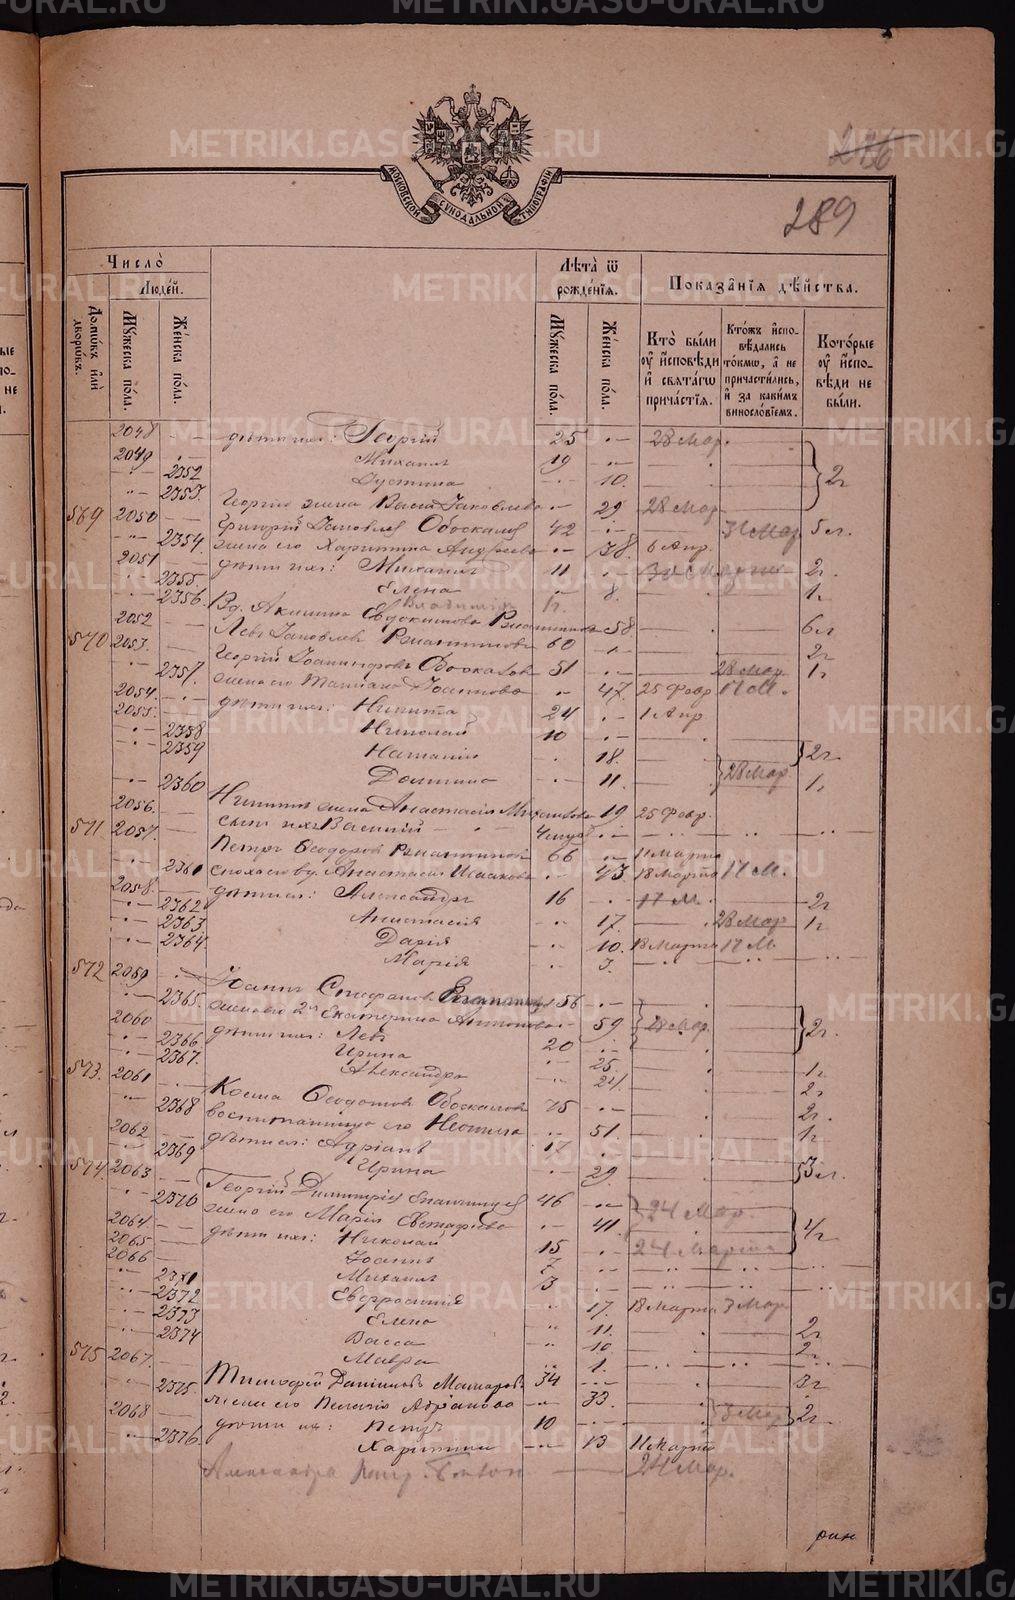 METRIKI.GASO-URAL.RU
МОСКОВСКОЙ СѴНОДАЛЬНОЙ ТИПОГРАФІИ
286
289
Число̀
Людей.
Домѡвъ или дворѡвъ.
Мꙋжеска пола.
Женска пола.
Лѣта ѿ рожденїѧ.
Мꙋжеска пола.
Женска пола.
Показанїѧ дѣйства.
Кто были оу исповѣди и свѧтагѡ причастїѧ.
Ктожъ исповѣдались токмѡ, а не причастились, и за какимъ винословїемъ.
Которые оу исповѣди не были.
2048 дѣти ихъ: Георгій 25 28 Мар.
2049 Михаилъ 19
2352 Іустина 10 2 г
2353 Георгія жена Васса Іаковлева 29 28 Мар
569 2050 Григорій Іаковлев Обоскалов 42 31 Мар 5 л.
2354 жена его Харитина Андреева 38 6 Апр.
2051 дѣти ихъ: Михаилъ 11 2 г
2355 Елена 8 1 г
2356 Вд. Акилина Евдокимова 58 6 л
2052 Левъ Іаковлев 60 2 г
570 2053 Георгій Обоскалов 51 28 Мар 1 г
2357 жена его Татіана 47 25 Февр 17 М.
2054 дѣти ихъ: Никита 24 1 Апр
2055 Николай 10
2358 Наталія 18 2 г
2359 28 Мар 11 1 г
2360 Никиты жена Анастасія Михаилова 19 25 Февр.
2056 сынъ ихъ Василій
571 2057 Петръ Ѳеодоров 66 11 Марта
2361 сноха его вд. Анастасія Исаакова 43 18 Марта 17 М.
2058 дѣти ея: Александръ 16 17 М. 2 г
2362 Анастасія 17 28 Мар 1 г
2363 Дарія 10 18 Марта 17 М
2364 Марія 3
572 2059 Іоаннъ Стефанов 56
2365 жена его 2я Екатерина Антонова 59 28 Мар. 2 г
2060 дѣти ихъ: Левъ 20
2366 Ирина 25 1 г
2367 Александра 21 2 г
573 2061 Косма Ѳеодотов Обоскалов 75 2 г
2368 воспитанница его 51 1 г
2062 дѣти ея: Адріанъ 17
2369 Ирина 29 3 л.
574 2063 Георгій Димитріев 46
2370 жена его Марія Евстафіева 41 24 Мар. 4 г
2064 дѣти ихъ: Николай 15 24 Марта
2065 Іоаннъ 7
2066 Михаилъ 3
2371 Евфросинія 17 18 Марта 3 Мар
2372 Елена 11 2 г
2373 Васса 10 2 г
2374 Мавра 1
575 2067 Тимофей Даніилов 34 3 г
2375 жена его Пелагія Адріанова 33 3 Мар 2 г
2068 дѣти их: Петръ 10
2376 Харитина 13 11 Марта
Александра 24 Мар.